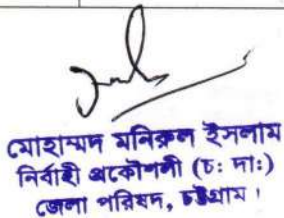 মোহাম্মদ মনিরুল ইসলাম
নির্বাহী প্রকৌশলী (চ: দা:)
জেলা পরিষদ, চট্টগ্রাম।